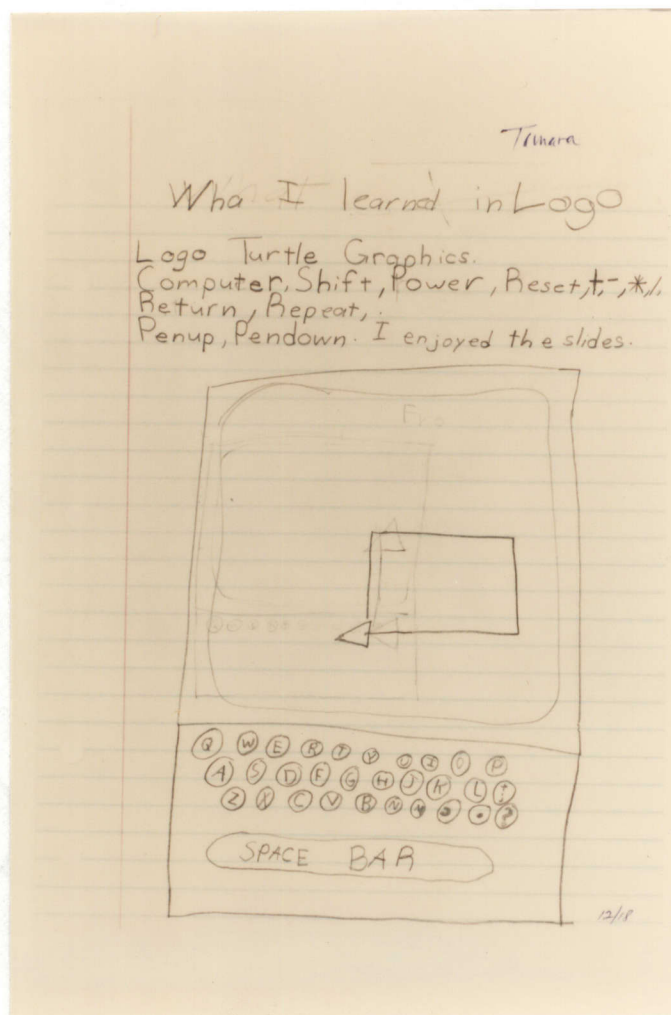 Wha I learned in Logo
Logo Turtle Graphics.
Computer, Shift, Power, Reset, +, -, *, /,
Return, Repeat,
Penup, Pendown. I enjoyed the slides.
Q W E R T Y U I O P
A S D F G H J K L
Z X C V B N M
SPACE BAR
12/18